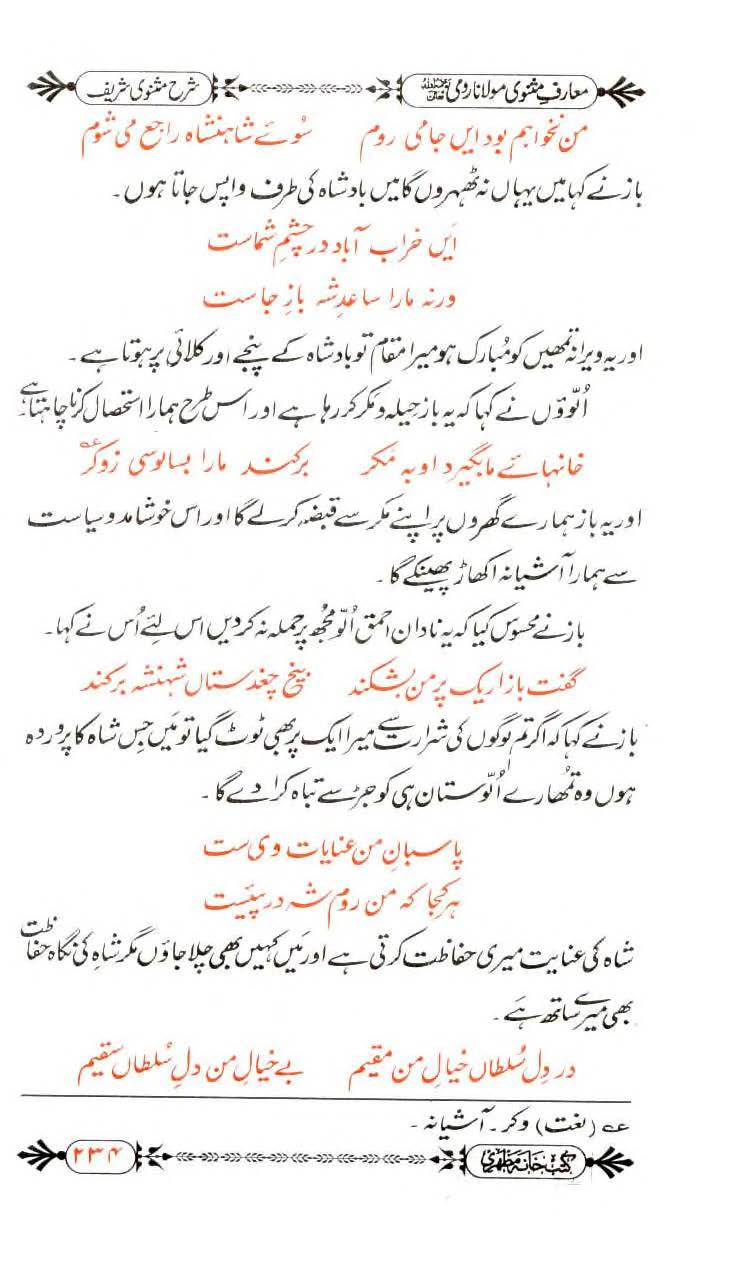 معارفِ مثنوی مولانا رومی رحمۃ اللہ علیہ
شرح مثنوی شریف
من نخواہم بود ایں جا می روم سُوئے شاہنشاہ راجع می شوم
باز نے کہا میں یہاں نہ ٹھہروں گا میں بادشاہ کی طرف واپس جاتا ہوں۔
ایں خراب آباد در چشمِ شماست
ورنہ مارا ساعدِ شہ بازِ جاست
اور یہ ویرانہ تمھیں کو مُبارک ہو میرا مقام تو بادشاہ کے پنجے اور کلائی پر ہوتا ہے۔
اُلّوؤں نے کہا کہ یہ باز حیلہ و مکر کر رہا ہے اور اس طرح ہمارا استحصال کرنا چاہتا ہے۔
خانہائے ما بگیرد او بہ مَکر برکند مارا بسالوسی زوکر عہ
اور یہ باز ہمارے گھروں پر اپنے مکر سے قبضہ کر لے گا اور اس خوشامد و سیاست
سے ہمارا آشیانہ اکھاڑ پھینکے گا۔
باز نے محسوس کیا کہ یہ نادان احمق اُلّو مجھ پر حملہ نہ کر دیں اس لئے اُس نے کہا۔
گفت باز ار یک پر من بشکند بیخ چغدستاں شہنشہ برکند
باز نے کہا کہ اگر تم لوگوں کی شرارت سے میرا ایک پر بھی ٹوٹ گیا تو مَیں جس شاہ کا پروردہ
ہوں وہ تمُھارے اُلّوستان ہی کو جڑ سے تباہ کرا دے گا۔
پاسبانِ من عنایات وی ست
ہر کجا کہ من روم شہ در پئیست
شاہ کی عنایت میری حفاظت کرتی ہے اور مَیں کہیں بھی چلا جاؤں مگر شاہ کی نگاہ حفاظت
بھی میرے ساتھ ہے۔
در دِل سُلطاں خیالِ من مقیم بے خیالِ من دلِ سُلطاں سقیم
عہ (لغت) وکر۔ آشیانہ۔
کتب خانہ مظہری
۲۳۴